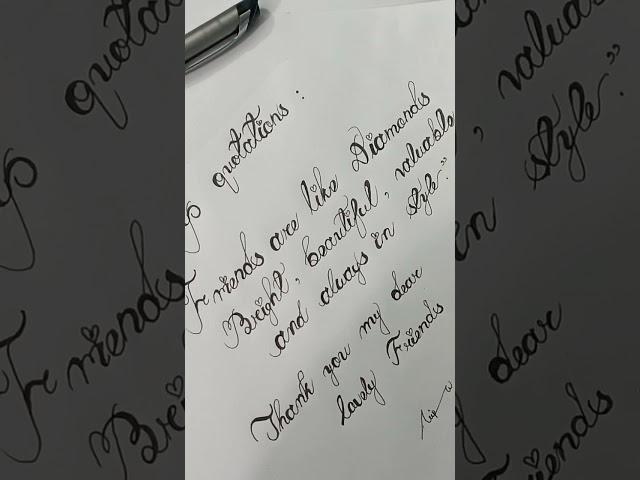 quotations :
Friends are like Diamonds
Bright, beautiful, valuable
and always in style."
Thank you my dear
lovely Friends